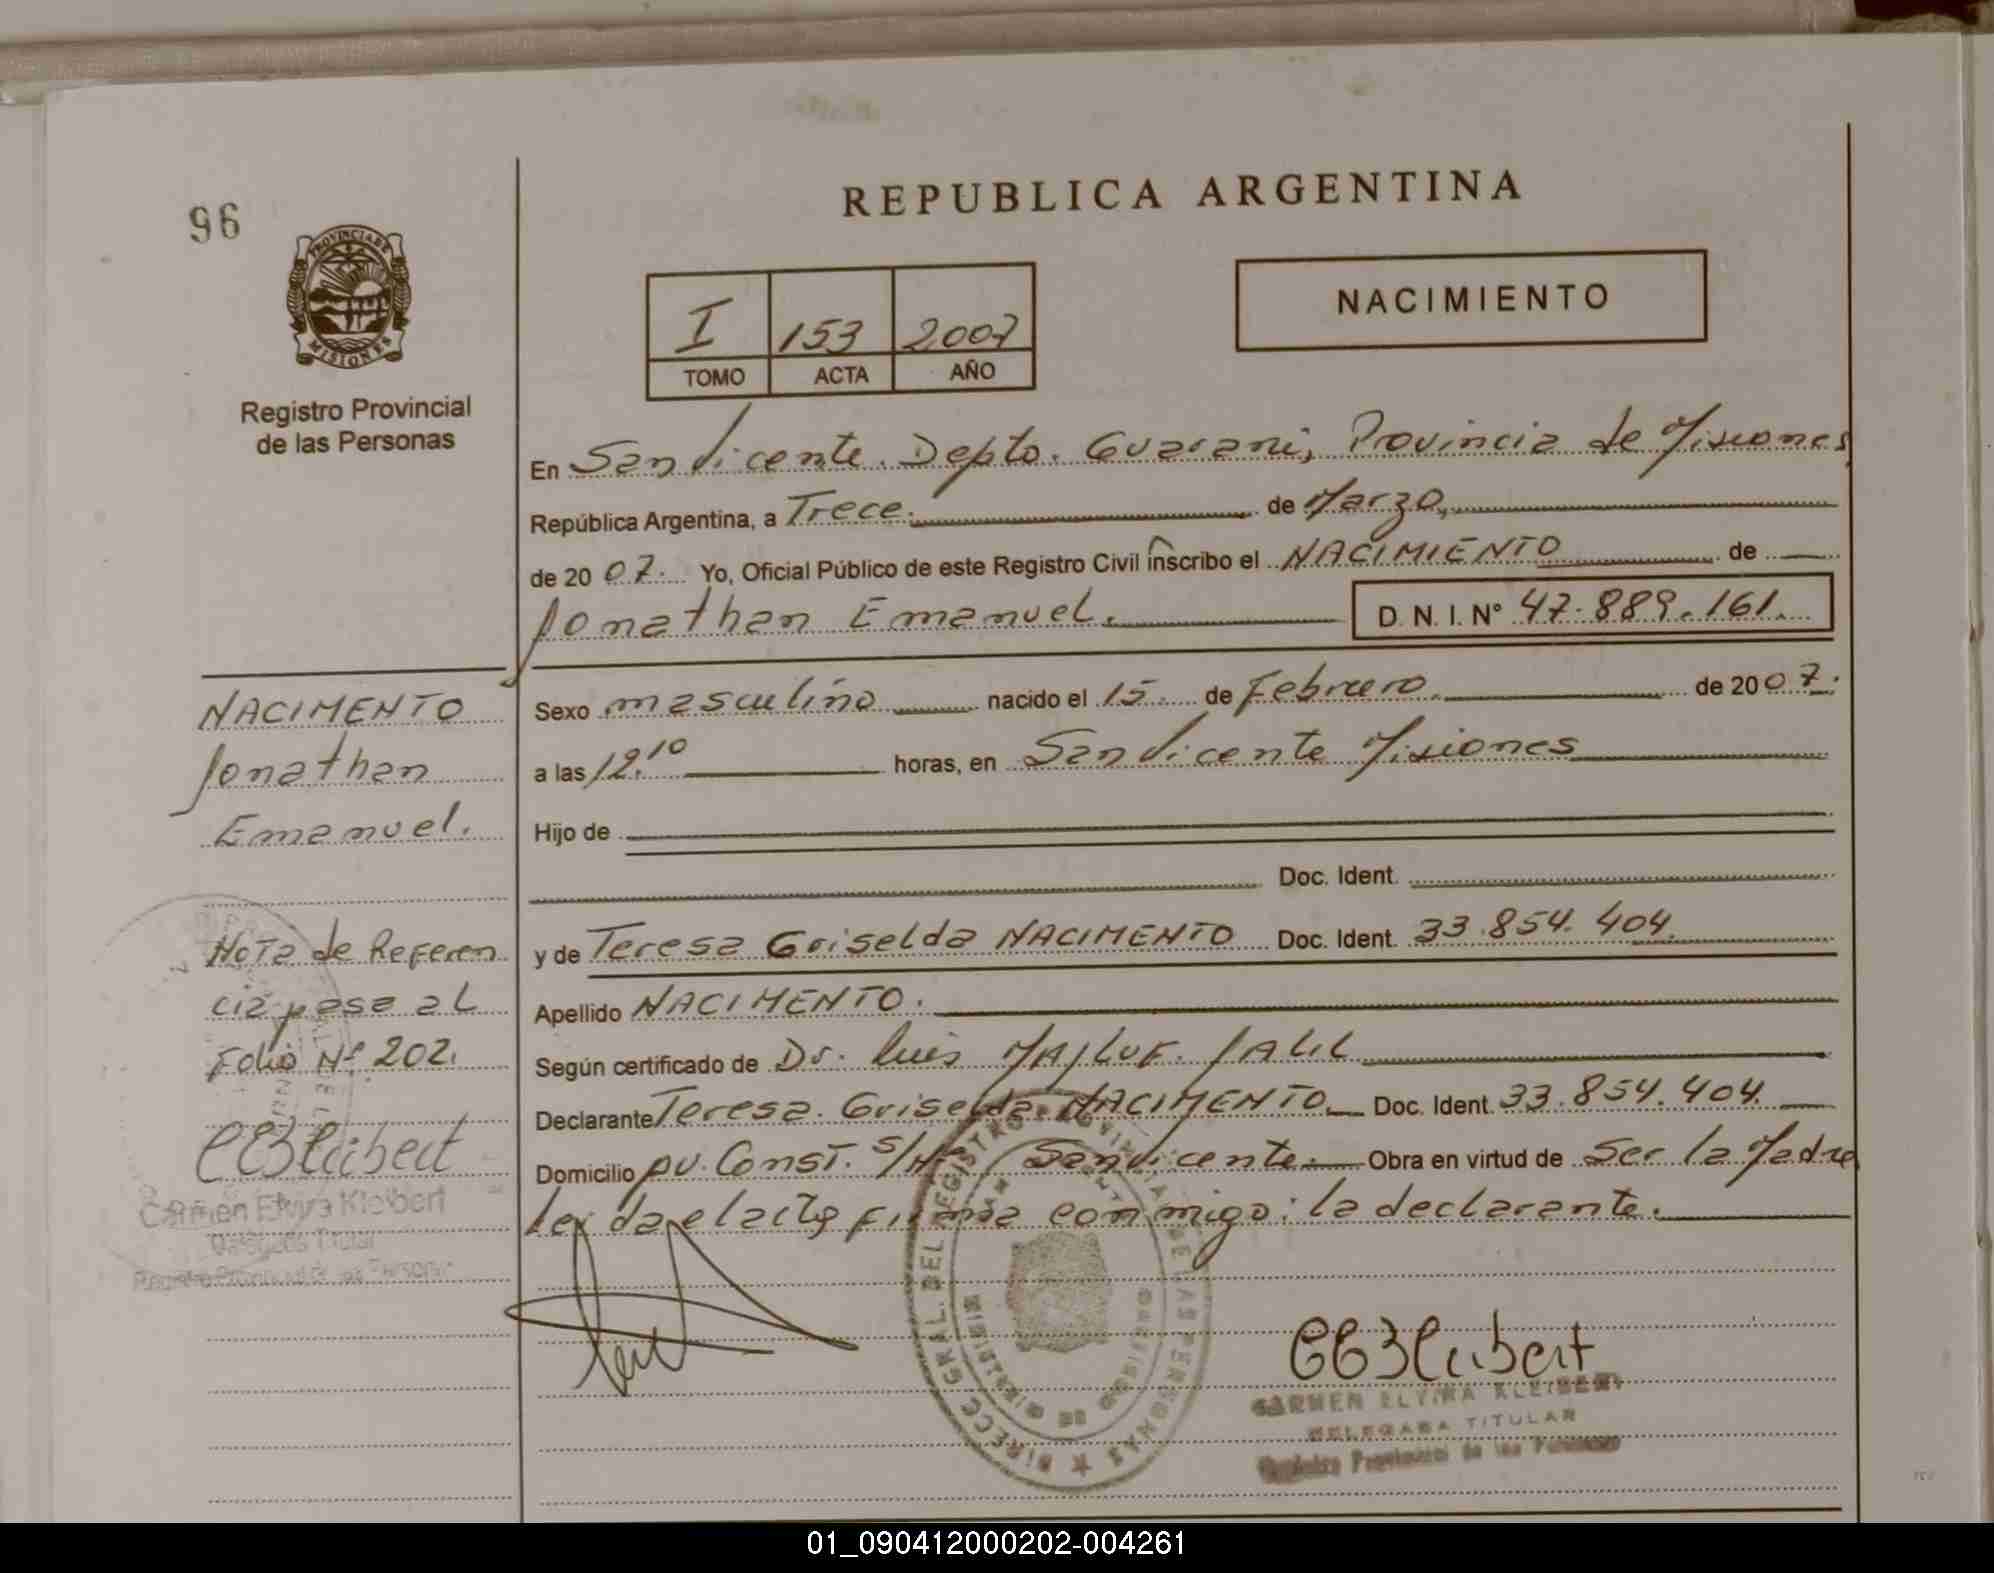 96
PROVINCIA DE
MISIONES
Registro Provincial
de las Personas
REPUBLICA ARGENTINA
I 153 2007
TOMO ACTA AÑO
NACIMIENTO
En San Vicente. Depto. Guarani, Provincia de Misiones
República Argentina, a Trece. de Marzo,
de 2007. Yo, Oficial Público de este Registro Civil inscribo el NACIMIENTO de
Jonathan Emanuel. D. N. I. Nº 47.889.161.
Sexo masculino nacido el 15. de Febrero. de 2007.
a las 12.10 horas, en San Vicente Misiones
Hijo de
Doc. Ident.
y de Teresa Griselda NACIMENTO Doc. Ident. 33.854.404.
Apellido NACIMENTO.
Según certificado de Dr. Luis MAJLUF. JALIL
Declarante Teresa. Griselda NACIMENTO Doc. Ident. 33.854.404.
Domicilio AV. Const. S/Nº San Vicente. Obra en virtud de Ser la Madre
Leida el acta firma conmigo: la declarante.
NACIMENTO
Jonathan
Emanuel.
Nota de Referen
cia pasa al
Folio Nº 202.
Carmen Elvira Kleibert
Delegada Titular
Registro Provincial de las Personas
DIRECC. GRAL. DEL REGISTRO PROVINCIAL DE LAS PERSONAS
CARMEN ELVIRA KLEIBERT
DELEGADA TITULAR
Registro Provincial de las Personas
01_090412000202-004261